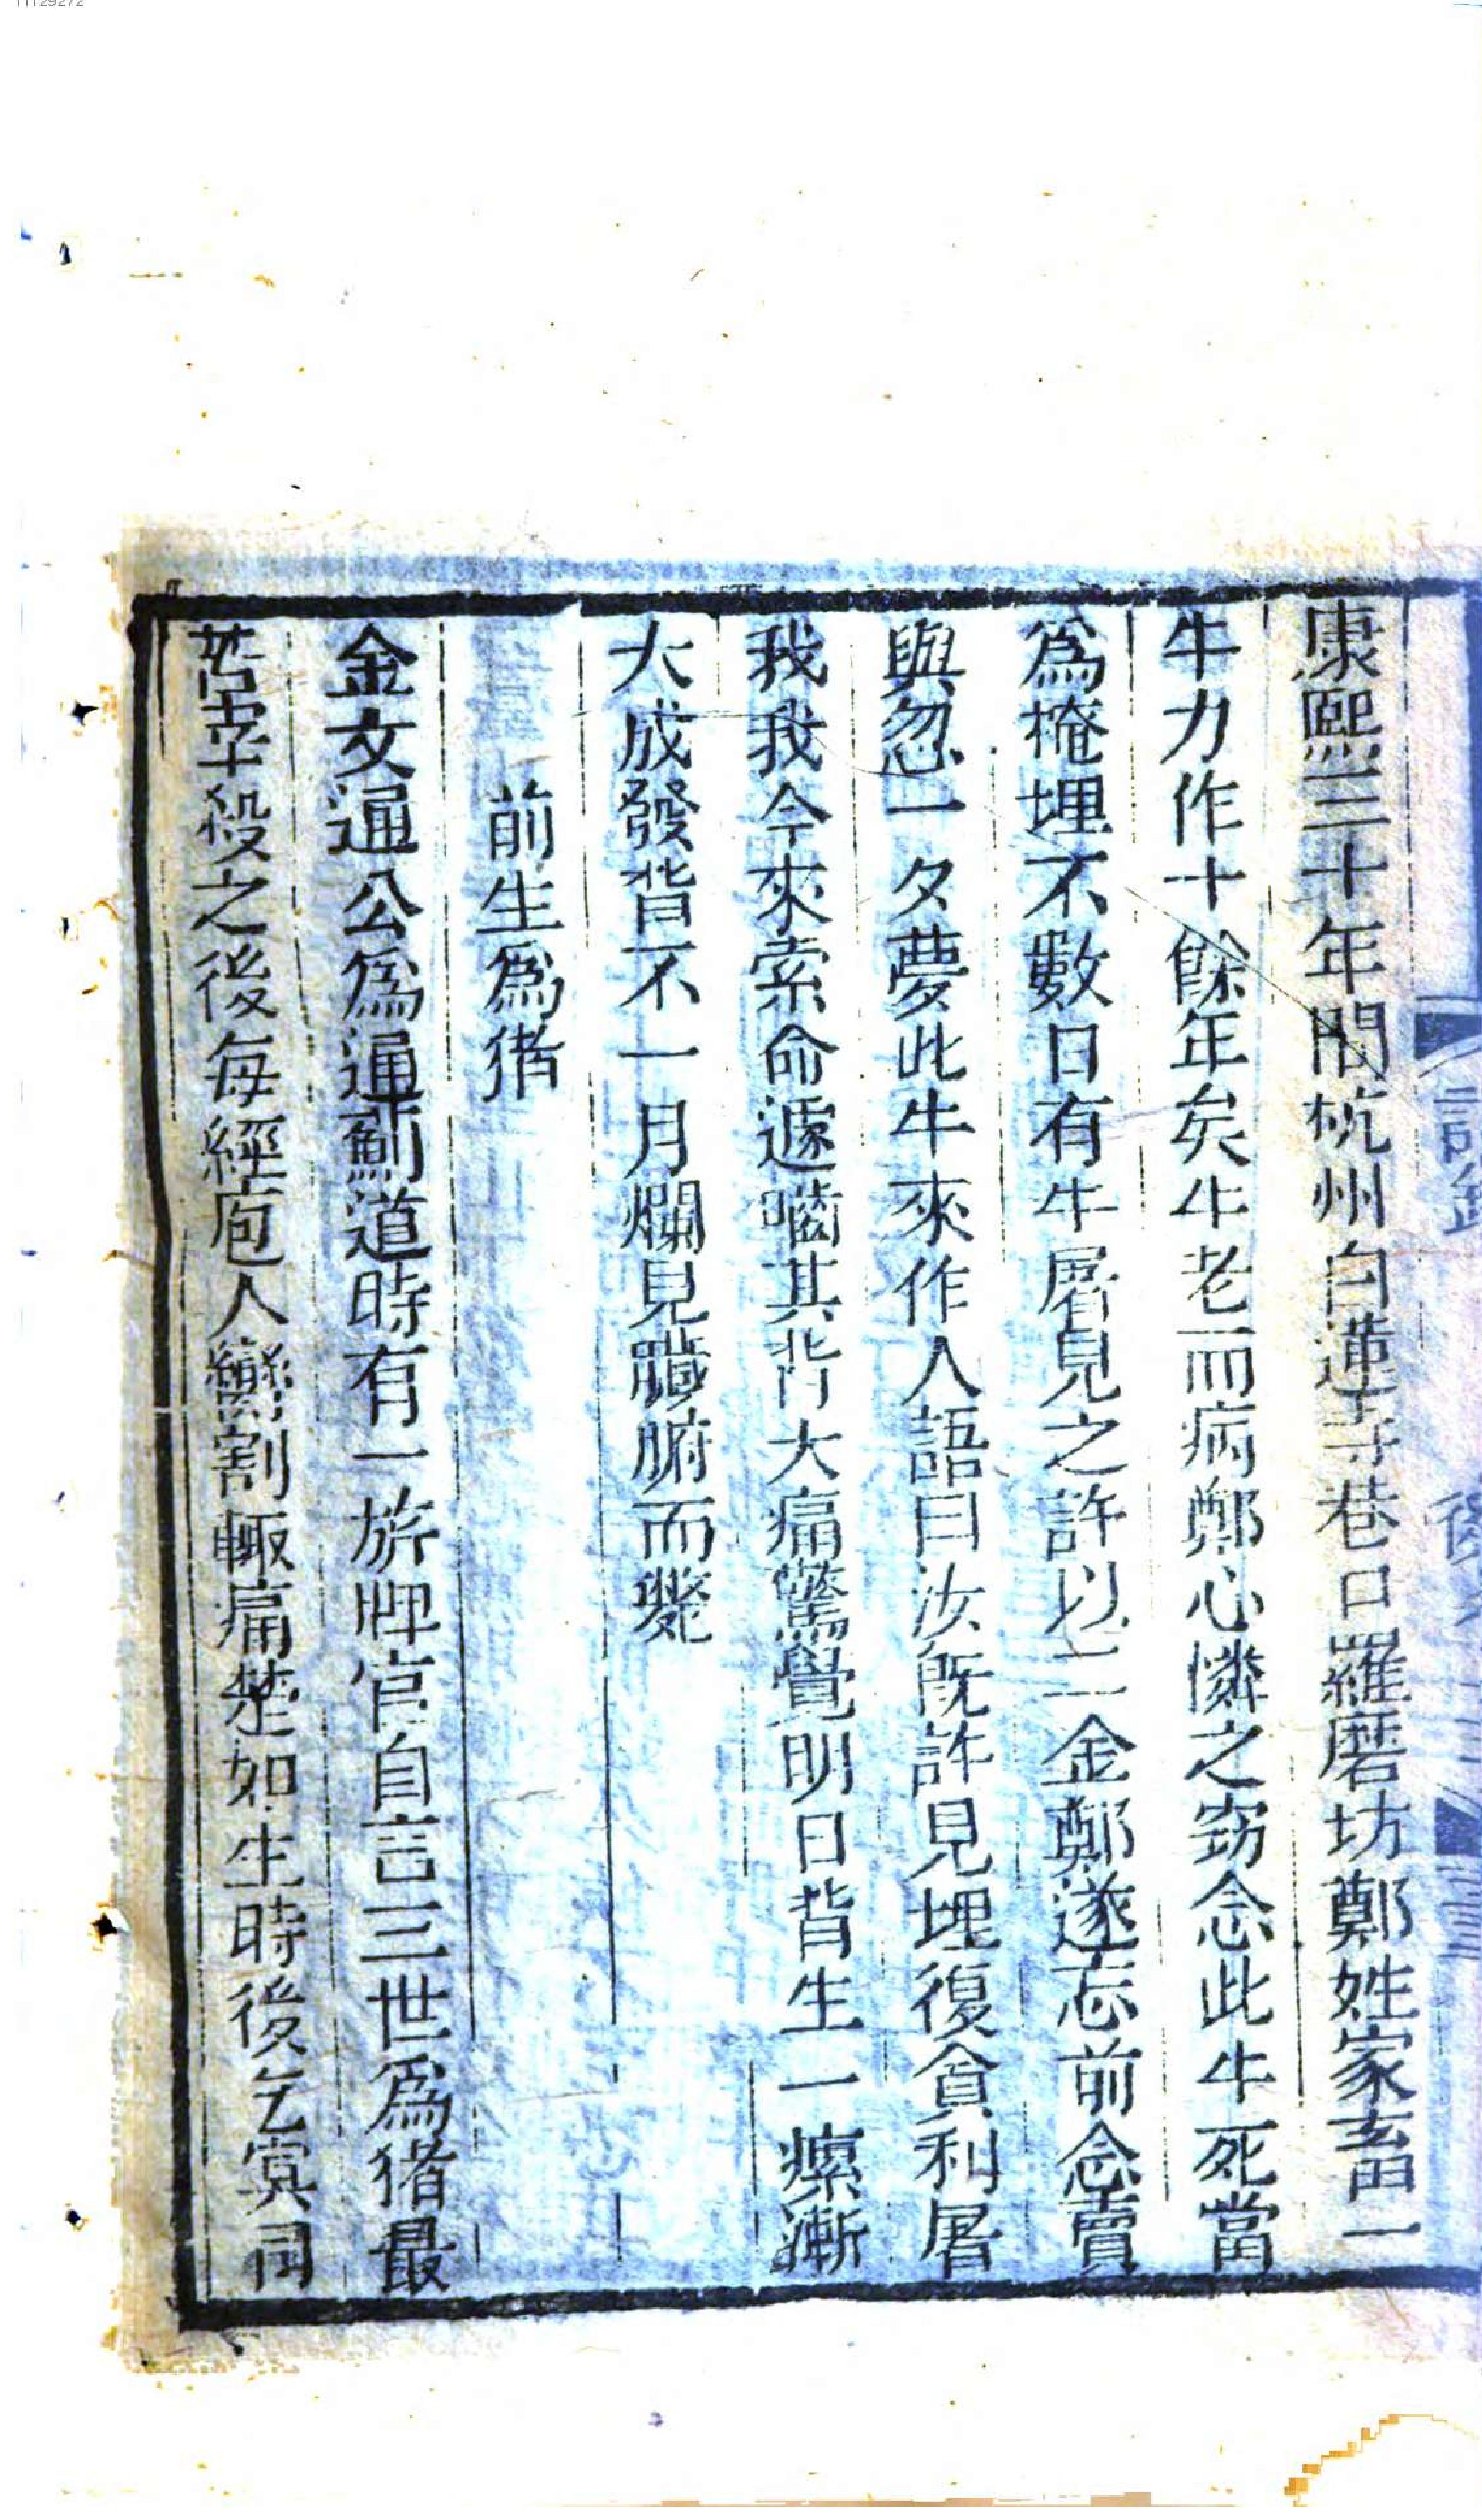 康熙三十年間杭州白蓮寺巷口羅磨坊鄭姓家畜一
牛力作十餘年矣牛老而病鄭心憐之窃念此牛死當
爲掩埋不數日有牛屠見之許以二金鄭遂忘前念賣
與忽一夕夢此牛來作人語曰汝旣許見埋復貪利屠
我我今來索命遽嚙其背大痛驚覺明日背生一瘰漸
大成發背不一月爛見臟腑而斃
前生爲猪
金文通公爲通薊道時有一旂牌官自言三世爲猪最
苦宰殺之後每經庖人臠割輒痛楚如生時後乞寞司